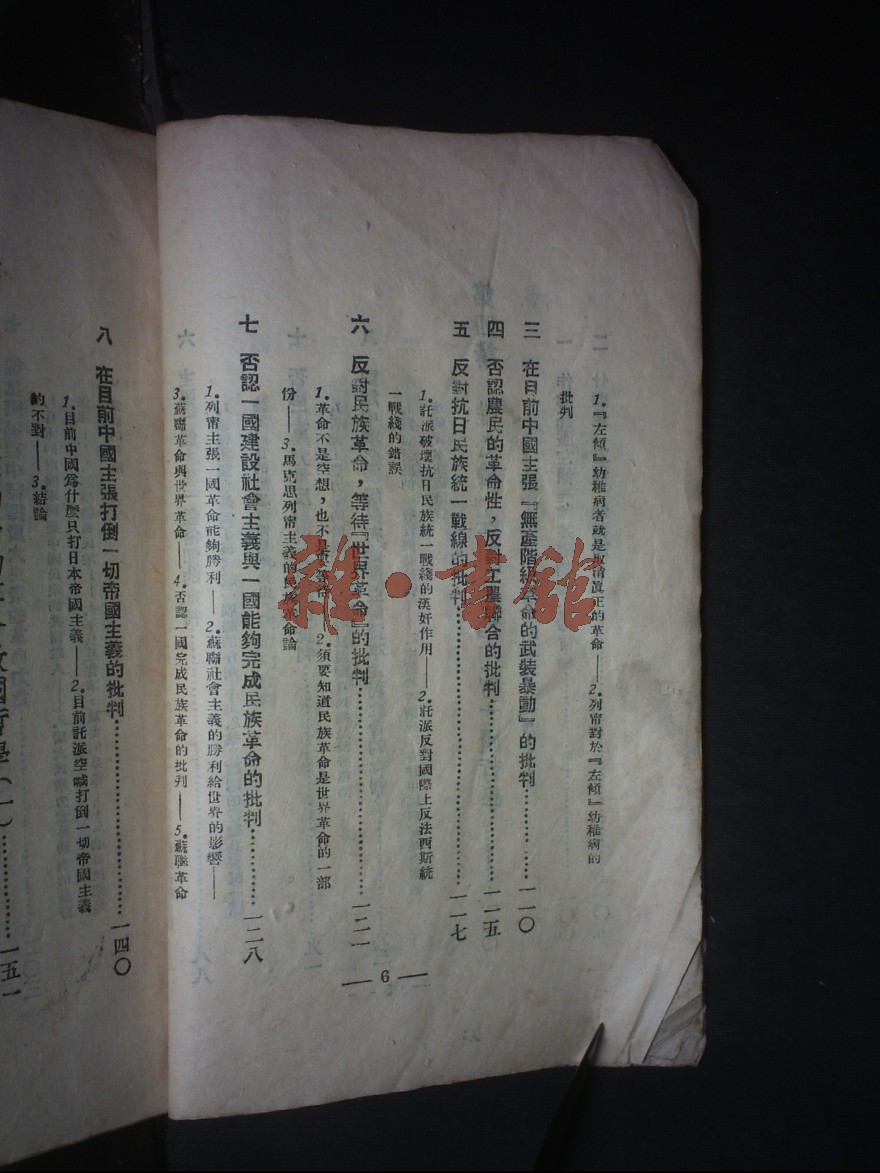 1.『左傾』幼稚病者就是取消眞正的革命——2.列甯對於『左傾』幼稚病的
批判
三 在目前中國主張『無產階級革命的武裝暴動』的批判…………一一〇
四 否認農民的革命性，反對工農聯合的批判…………一一五
五 反對抗日民族統一戰線的批判…………一一七
1.託派破壞抗日民族統一戰綫的漢奸作用——2.託派反對國際上反法西斯統
一戰綫的錯誤
六 反對民族革命，等待『世界革命』的批判…………一二一
1.革命不是空想，也不是等待——2.須要知道民族革命是世界革命的一部
份——3.馬克思列甯主義的民族革命論
七 否認一國建設社會主義與一國能夠完成民族革命的批判…………一二八
1.列甯主張一國革命能夠勝利——2.蘇聯社會主義的勝利給世界的影響——
3.蘇聯革命與世界革命——4.否認一國完成民族革命的批判——5.蘇聯革命
— 6 —
八 在目前中國主張打倒一切帝國主義的批判…………一四〇
1.目前中國爲什麼只打日本帝國主義——2.目前託派空喊打倒一切帝國主義
的不對——3.結論
一五一
雜·書館